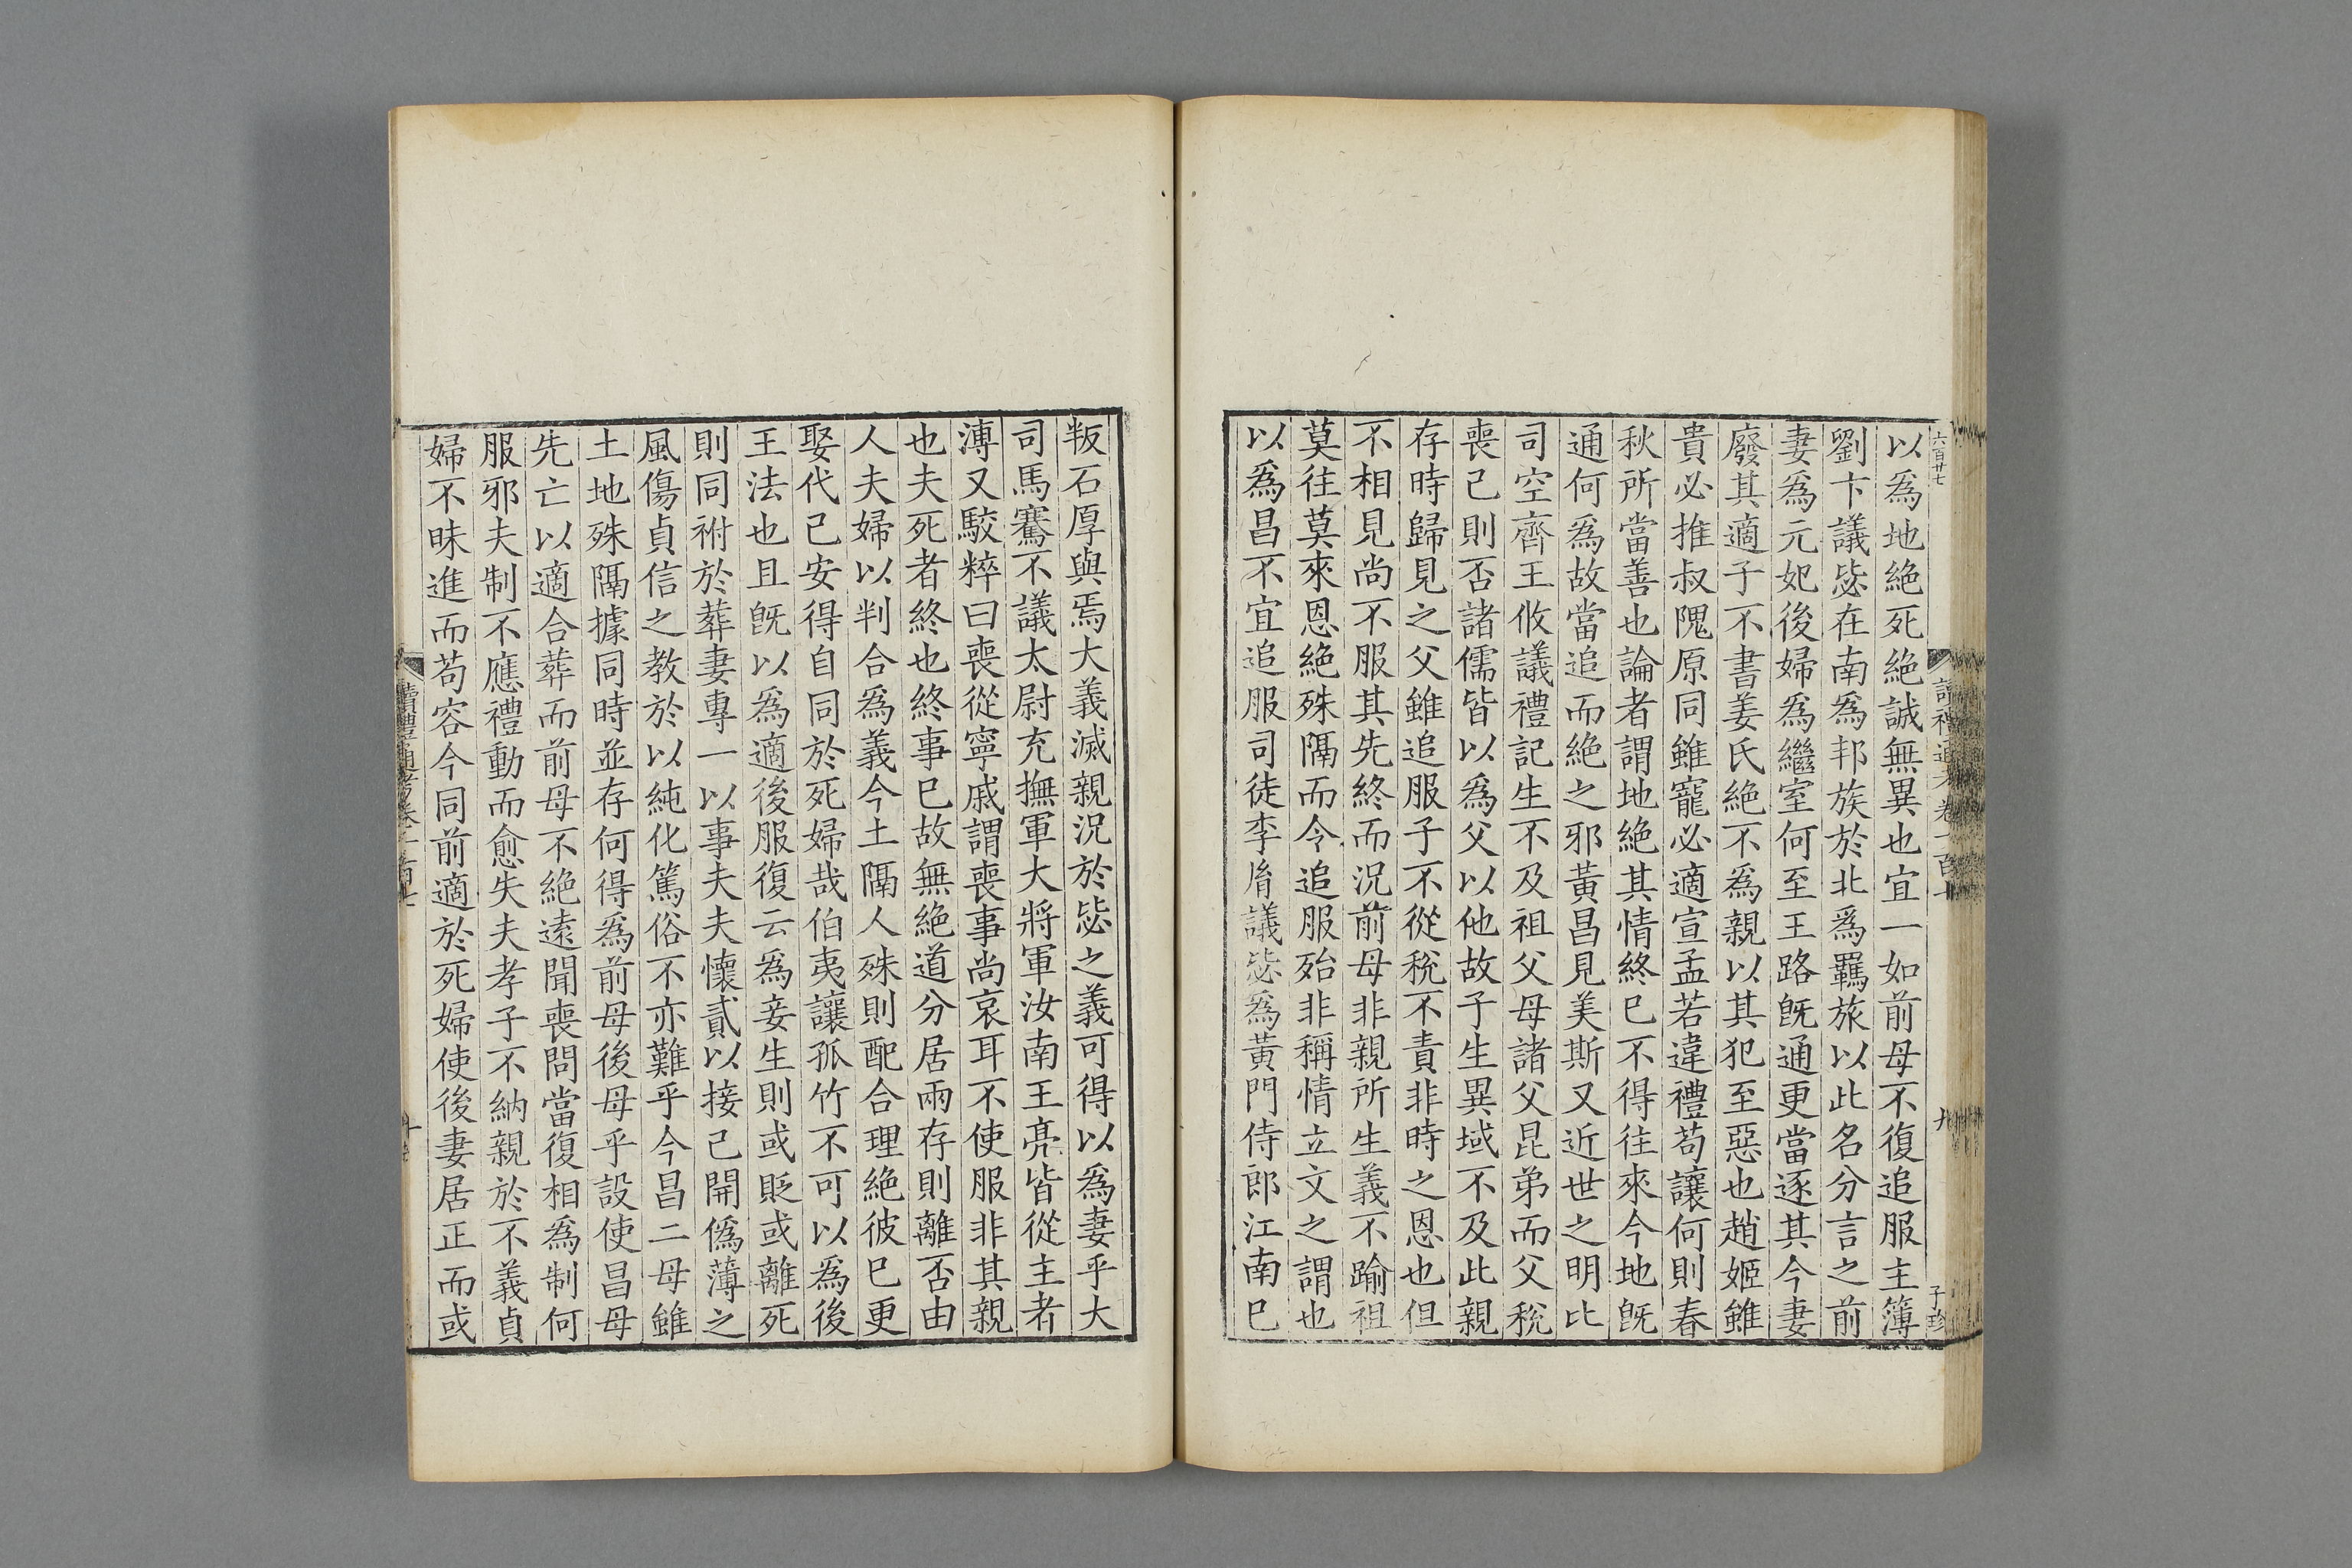 六百廿七
以爲地絶死絶誠無異也宜一如前母不復追服主簿
劉卞議毖在南爲邦族於北爲羈旅以此名分言之前
妻爲元妃後婦爲繼室何至王路旣通更當逐其今妻
廢其適子不書姜氏絶不爲親以其犯至惡也趙姬雖
貴必推叔隗原同雖寵必適宣孟若違禮苟讓何則春
秋所當善也論者謂地絶其情終已不得往來今地旣
通何爲故當追而絶之邪黃昌見美斯又近世之明比
司空齊王攸議禮記生不及祖父母諸父昆弟而父稅
喪己則否諸儒皆以爲父以他故子生異域不及此親
存時歸見之父雖追服子不從稅不責非時之恩也但
不相見尚不服其先終而況前母非親所生義不踰祖
莫往莫來恩絶殊隔而令追服殆非稱情立文之謂也
以爲昌不宜追服司徒李胤議毖爲黃門侍郎江南已
讀禮通考卷一百十
九
子珍
叛石厚與焉大義滅親況於毖之義可得以爲妻乎大
司馬騫不議太尉充撫軍大將軍汝南王亮皆從主者
溥又駮粹曰喪從寧戚謂喪事尚哀耳不使服非其親
也夫死者終也終事已故無絶道分居兩存則離否由
人夫婦以判合爲義今土隔人殊則配合理絶彼已更
娶代己安得自同於死婦哉伯夷讓孤竹不可以爲後
王法也且旣以爲適後服復云爲妾生則或貶或離死
則同祔於葬妻專一以事夫夫懷貳以接己開僞薄之
風傷貞信之教於以純化篤俗不亦難乎今昌二母雖
土地殊隔據同時並存何得爲前母後母乎設使昌母
先亡以適合葬而前母不絶遠聞喪問當復相爲制何
服邪夫制不應禮動而愈失夫孝子不納親於不義貞
婦不昧進而苟容今同前適於死婦使後妻居正而或
讀禮通考卷一百十
十